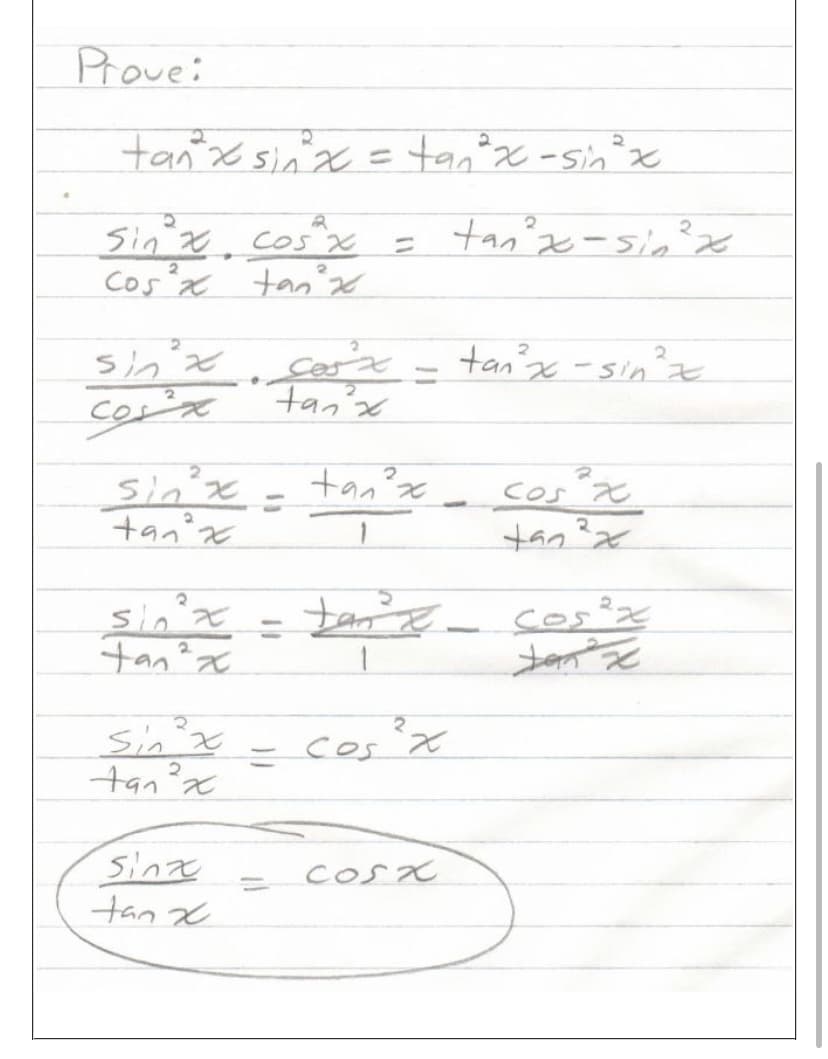 Prove:
tan²x sin²x = tan²x - sin²x
sin²x/cos²x · cos²x/tan²x = tan²x - sin²x
sin²x/cos²x · cos²x/tan²x = tan²x - sin²x
sin²x/tan²x = tan²x/1 - cos²x/tan²x
sin²x/tan²x = tan²x/1 - cos²x/tan²x
sin²x/tan²x = cos²x
sinx/tanx = cosx